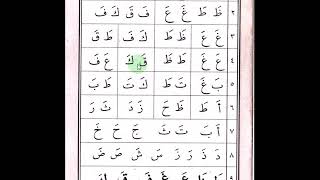 ٢ ظَ طَ غَ عَ فَ قَ كَ فَ
٣ عَ غَ ظَ طَ كَ فَ طَ قَ
٤ غَ عَ ظَ طَ قَ كَ عَ فَ
٥ بَ غَ تَ طَ تَ كَ طَ بَ
٦ أَ طَ ظَ حَ زَ دَ ثَ رَ
٧ أَ بَ تَ ثَ جَ حَ خَ
٨ دَ ذَ رَ زَ سَ شَ صَ ضَ
٩ طَ ظَ عَ غَ فَ قَ كَ